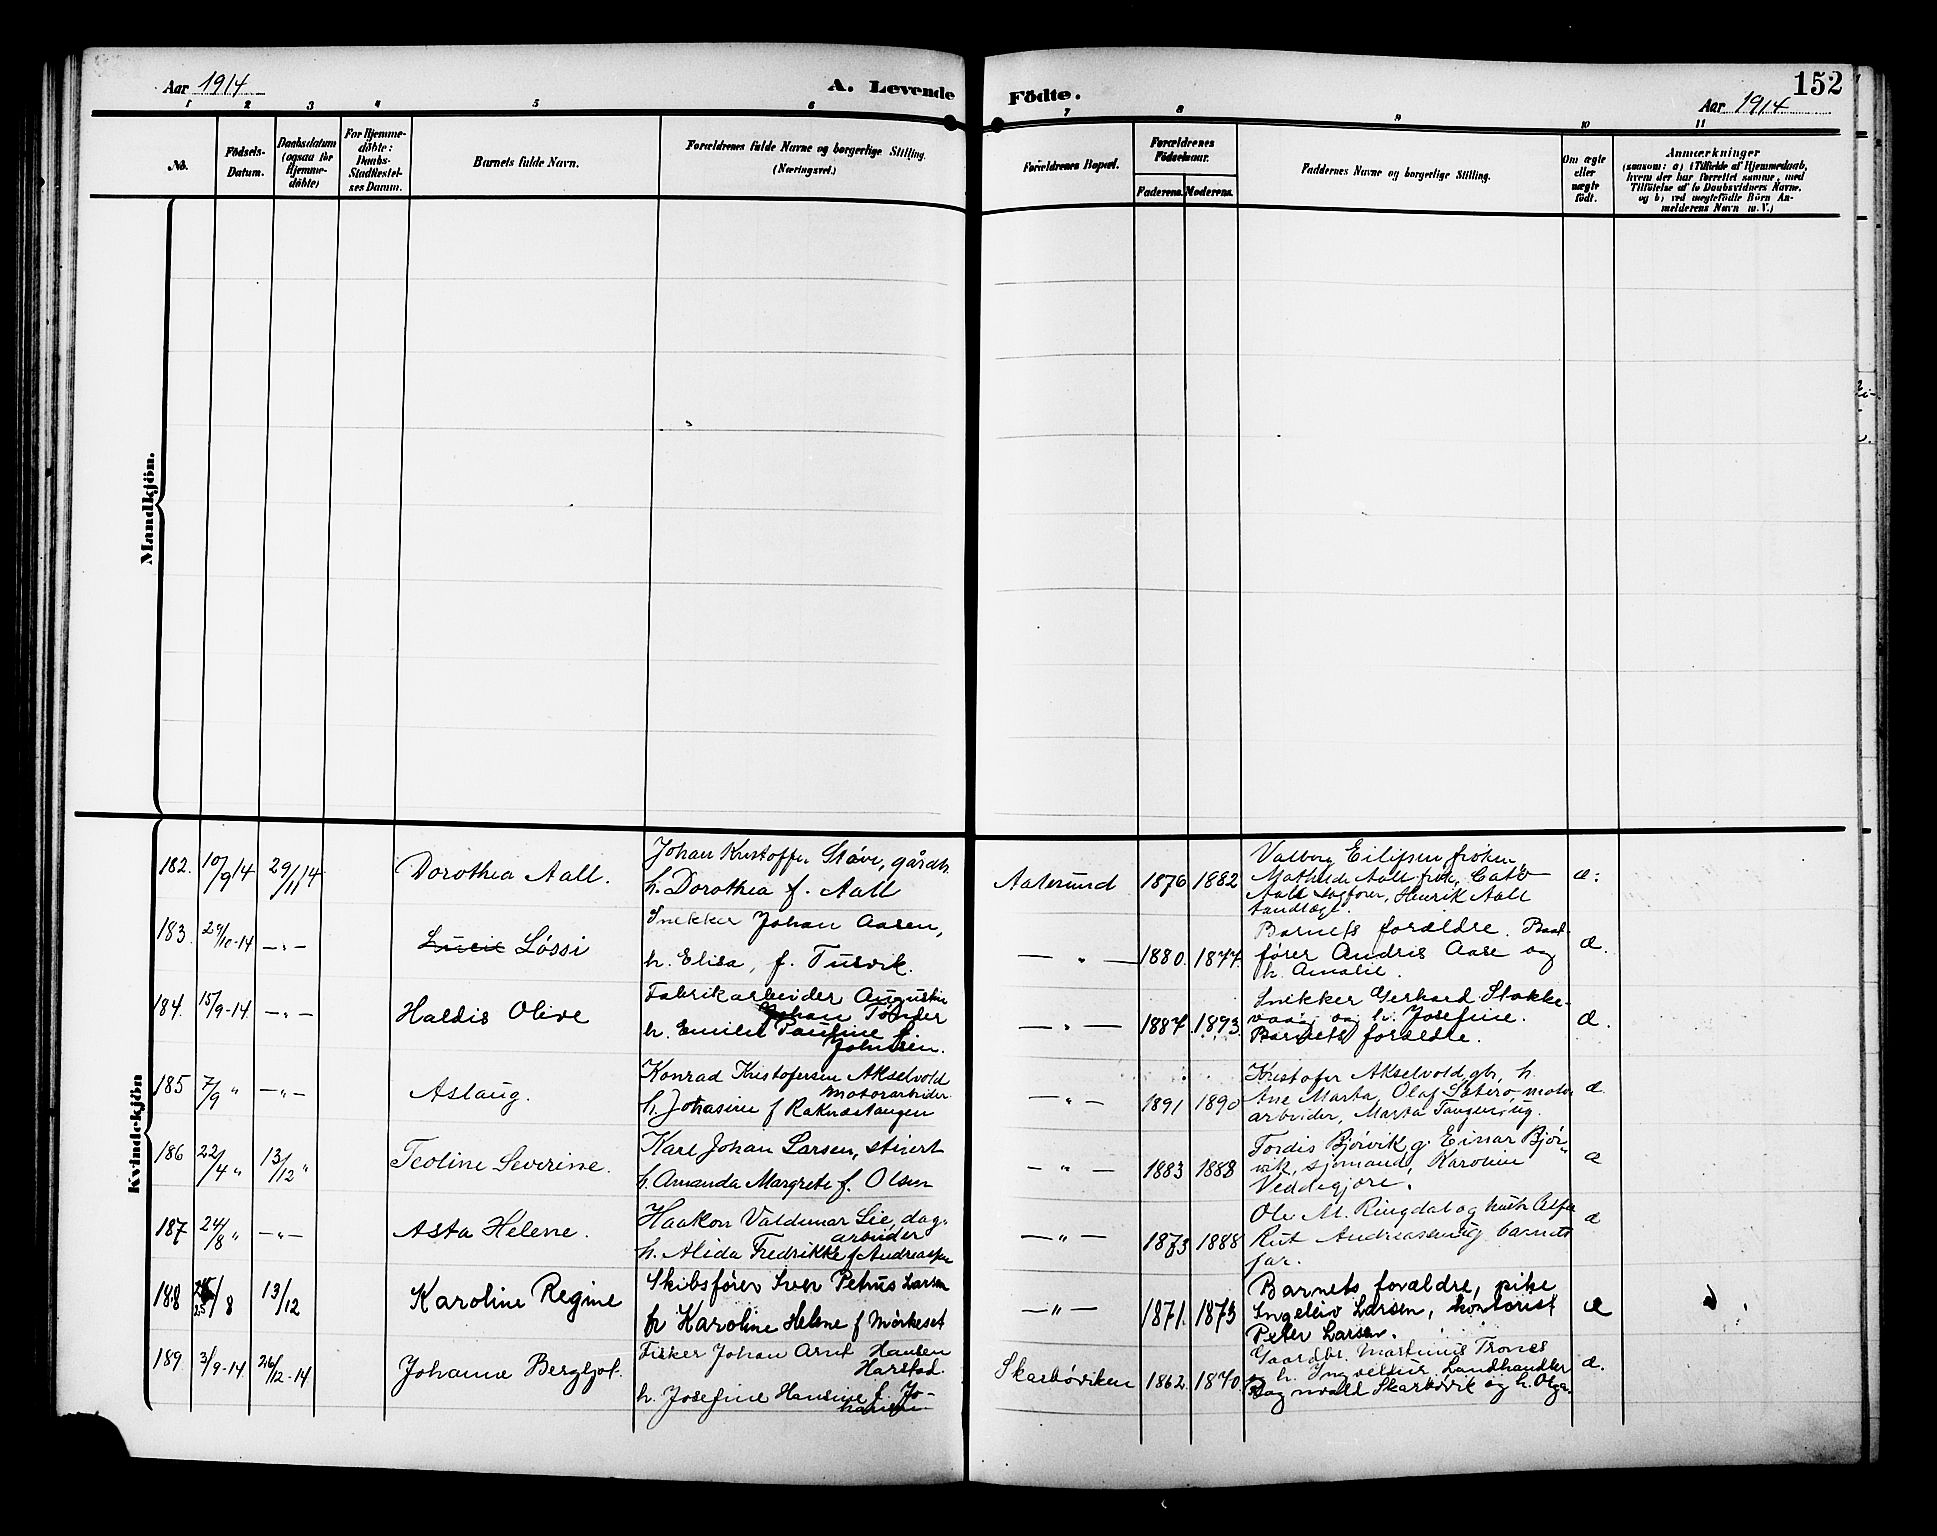 Aar 1914
A. Levende
Födte.
152
Aar 1914
1 2 3 4 5 6 7 8 9 10 11
No.
Födsels-
Datum.
Daabsdatum
(ogsaa for
Hjemme-
döbte)
For Hjemme-
döbte:
Daabs-
Stadfestel-
ses Datum.
Barnets fulde Navn.
Forældrenes fulde Navne og borgerlige Stilling.
(Næringsvei.)
Forældrenes Bopæl.
Forældrenes
Födselsaar.
Faderens. Moderens.
Faddernes Navne og borgerlige Stilling.
Om ægte
eller
uægte
födt.
Anmærkninger
(saasom: a) i Tilfælde af Hjemmedaab,
hvem der har forrettet samme, med
Tilföielse af to Daabsvidners Navne.
og b) ved uægtefödte Börn An-
melderens Navn m. V.)
Mandkjön.
Kvindekjön
182. 10/9 14 29/11 14 Dorothea Aall.
Johan Kristoffer Støve, gårdb.
h. Dorothea f. Aall
Aalesund 1876 1882
Valborg Eilifsen frøken,
Mathilde Aall frk., Cato
Aall sagfører, Henrik Aall
tandlæge.
æ.
183. 29/10-14 —"— Lucie Løssi
Snekker Johan Aasen,
h. Elisa, f. Tusvik.
—"— 1880. 1877.
Barnets forældre. Baat-
fører Andris Aase og
h. Amalie.
æ.
184. 15/9-14 —"— Haldis Olive
Fabrikarbeider Augustin
Johan Tønder
h. Emilie Pauline f.
Johnsen.
—"— 1887. 1893.
Snekker Gerhard Stokke-
vaag og h. Josefine.
Barnets forældre.
æ.
185 7/9 " —"— Aslaug.
Konrad Kristofersen Akselvold
motorarbeider
h. Johasine f Raknestangen
—"— 1891 1890
Kristofer Akselvold gb, h.
Ane Marta, Olaf Sætero motor
arbeider, Marta Tangen ug.
æ.
186 22/4 " 13/12 " Teoline Severine.
Karl Johan Larsen, stuert
h. Amanda Margrete f. Olsen
—"— 1883 1888
Tordis Bjørvik g. Einar Bjør-
vik, sjømand, Karoline
Veddegjøre.
æ
187 24/8 " —"— Asta Helene.
Haakon Valdemar Lie, dag-
arbeider
h. Alida Fredrikke f Andreassen
—"— 1873 1888
Ole M. Ringdal og hustr Alfa
Rut Andreassen ug barnets
far.
æ
188 25/8 13/12 Karoline Regine
Skibsfører Iver Petrus Larsen
h Karoline Helene f Mørkeset
—"— 1871. 1873
Barnets forældre, pike
Ingeleiv Larsen, kontorist
Peter Larsen.
æ
189. 3/9-14 26/12-14 Johanne Bergljot.
Fisker Johan Arnt Hansen
Harstad.
h. Josefine Hansine f. Jo-
hansen
Skarbøviken 1862. 1870
Gaardbr. Martinus Trones
og h. Ingveldur, Landhandler
Ragnvald Skarbøvik og h. Olga.
æ.